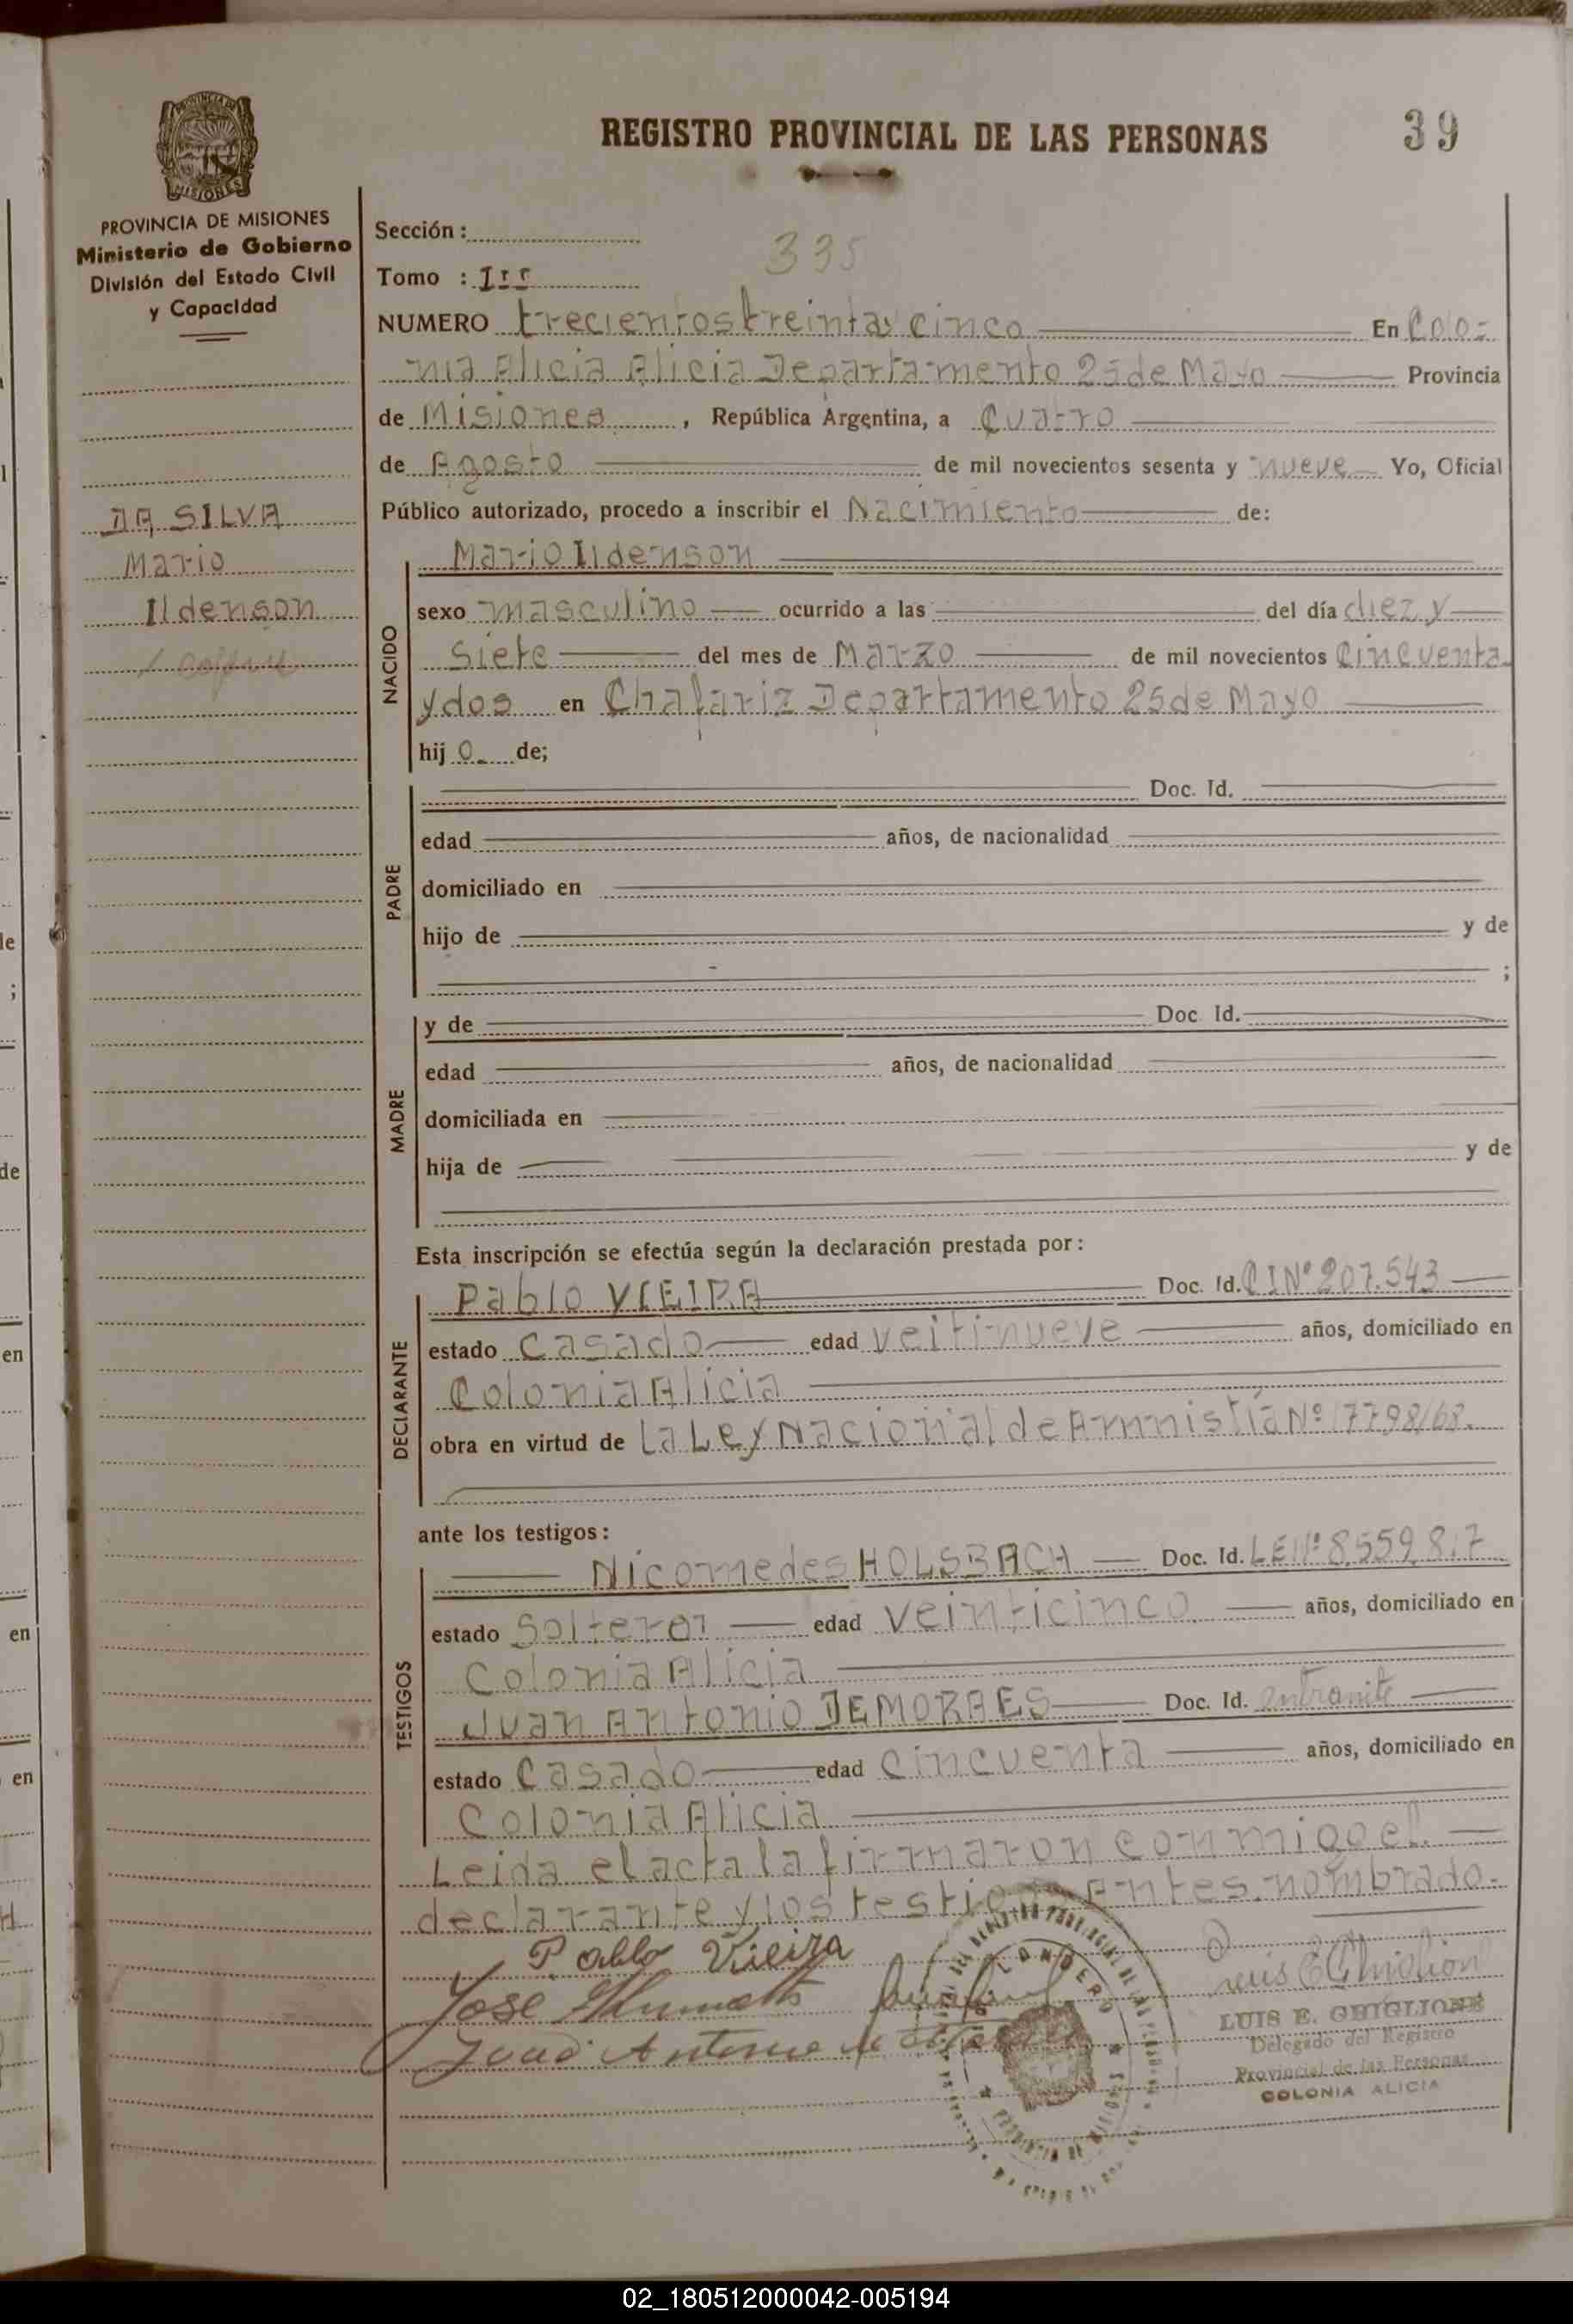 REGISTRO PROVINCIAL DE LAS PERSONAS
39
PROVINCIA DE MISIONES
Ministerio de Gobierno
División del Estado Civil
y Capacidad
DA SILVA
Mario
Ildenson
Sección :
335
Tomo : Irr
NUMERO trecientostreintay cinco En Colo=
nia Alicia Alicia Departa-mento 25 de Mayo Provincia
de Misiones , República Argentina, a Cuatro
de Agosto de mil novecientos sesenta y nueve Yo, Oficial
Público autorizado, procedo a inscribir el Nacimiento de:
NACIDO
Mario Ildenson
sexo masculino ocurrido a las del día diez y
Siete del mes de Marzo de mil novecientos Cincuenta
ydos en Chafariz Departamento 25 de Mayo
hij o de;
PADRE
Doc. Id.
edad años, de nacionalidad
domiciliado en
hijo de y de
;
MADRE
y de Doc Id.
edad años, de nacionalidad
domiciliada en
hija de y de
Esta inscripción se efectúa según la declaración prestada por:
DECLARANTE
Pablo VIEIRA Doc. Id. CI Nº 207.543
estado Casado edad veitinueve años, domiciliado en
Colonia Alicia
obra en virtud de La Ley Nacional de Amnistía Nº 17798/68.
ante los testigos:
TESTIGOS
Nicomedes HOLSBACH Doc. Id. LE Nº 8.559.817
estado Solteror edad veinticinco años, domiciliado en
Colonia Alicia
Juan Antonio DEMORAES Doc. Id. entramite
estado Casado edad Cincuenta años, domiciliado en
Colonia Alicia
Leida el acta la firmaron conmigo el
declarante y los testigos Antes nombrado.
Pablo Vieira
Jose
Juan Antonio de
LUIS E. GHIGLIONE
Delegado del Registro
Provincial de las Personas
COLONIA ALICIA
02_180512000042-005194